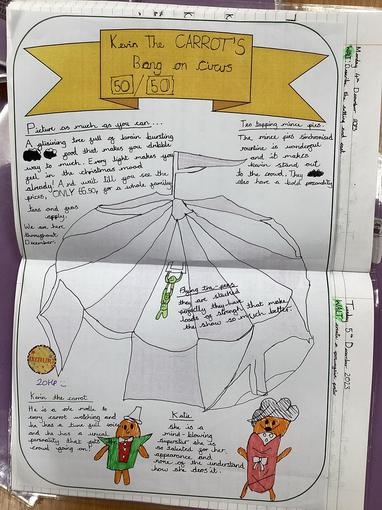 Kevin The CARROT'S
Bang on Circus
50 / 50
Monday 4th December 2023
Picture as much as you can...
A glisining tree full of brain bursting
food that makes you dribble
way to much. Every light makes you
feel in the christmas mood
already! And wait till you see the
prices, ONLY £6.50, for a whole family
tens and fives
apply.
We are here
throughout
December.
Tes tapping mince pies.
The mince pies sinchronised
routine is wonderful
and it makes
kevin stand out
to the crowd. They
also have a bold personality
Tuesday 5th December 2023
WALT
Flying tree peas
they are stacked
perfectly they have
loads of strength that makes
the show so much better.
20HP
Kevin the carrot
He is a role modle to
every carrot watching and
he has a time full
and he has a
personality that gets
crowd going on!
Katie
she is a
mind-blowing
superstar she is
so talented for her
appearance and
none of the understand
how she does it.